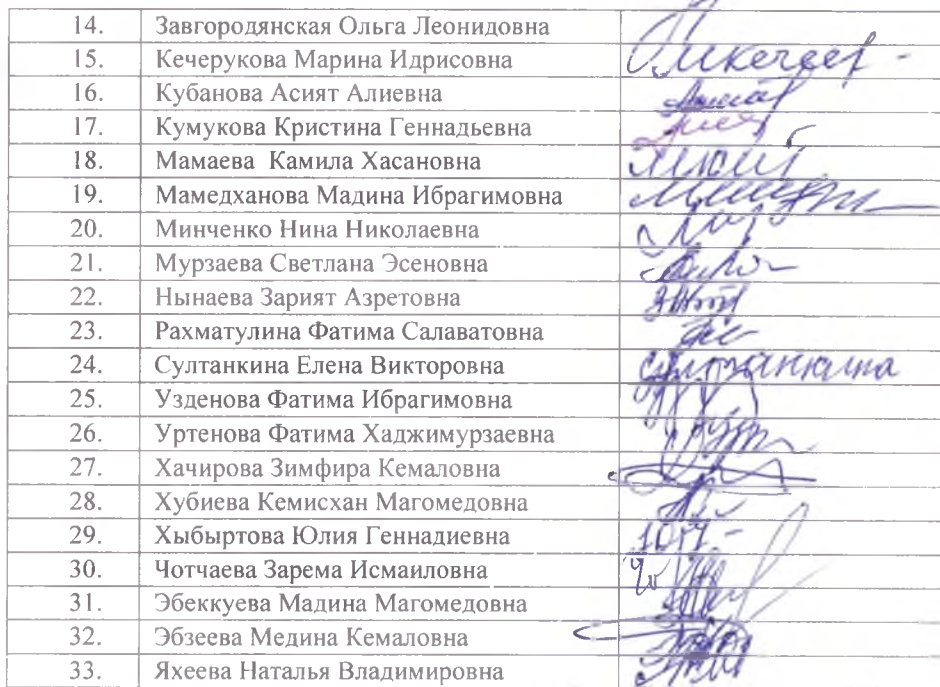 14. Завгородянская Ольга Леонидовна
15. Кечерукова Марина Идрисовна
16. Кубанова Асият Алиевна
17. Кумукова Кристина Геннадьевна
18. Мамаева Камила Хасановна
19. Мамедханова Мадина Ибрагимовна
20. Минченко Нина Николаевна
21. Мурзаева Светлана Эсеновна
22. Нынаева Зарият Азретовна
23. Рахматулина Фатима Салаватовна
24. Султанкина Елена Викторовна Султанкина
25. Узденова Фатима Ибрагимовна
26. Уртенова Фатима Хаджимурзаевна
27. Хачирова Зимфира Кемаловна
28. Хубиева Кемисхан Магомедовна
29. Хыбыртова Юлия Геннадиевна
30. Чотчаева Зарема Исмаиловна
31. Эбеккуева Мадина Магомедовна
32. Эбзеева Медина Кемаловна
33. Яхеева Наталья Владимировна